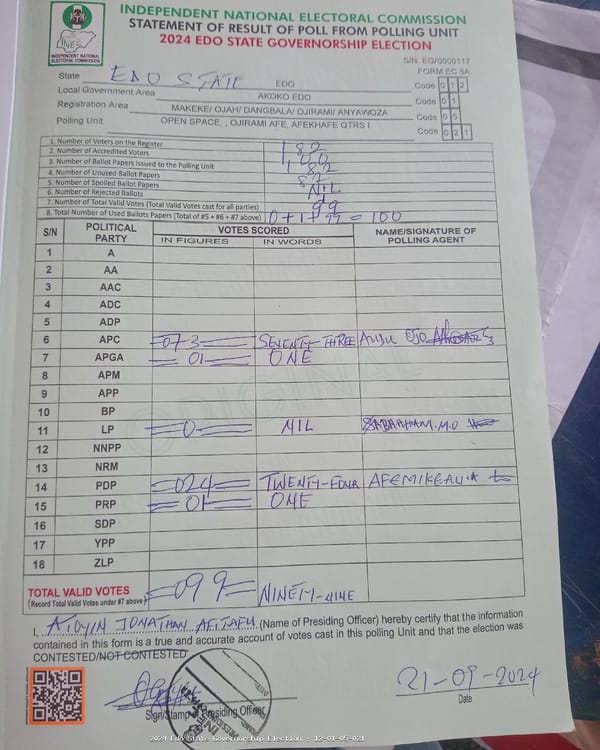 INDEPENDENT NATIONAL ELECTORAL COMMISSION
STATEMENT OF RESULT OF POLL FROM POLLING UNIT
2024 EDO STATE GOVERNORSHIP ELECTION
INEC
INDEPENDENT NATIONAL ELECTORAL COMMISSION
S/N. EG/0000117
FORM EC 8A
State EDO STATE EDO Code 0 1 2
Local Government Area AKOKO EDO Code 0 1
Registration Area MAKEKE/ OJAH/ DANGBALA/ OJIRAMI/ ANYAWOZA Code 0 5
Polling Unit OPEN SPACE, , OJIRAMI AFE, AFEKHAFE QTRS I Code 0 2 1
1. Number of Voters on the Register 182
2. Number of Accredited Voters 100
3. Number of Ballot Papers Issued to the Polling Unit 182
4. Number of Unused Ballot Papers 82
5. Number of Spoiled Ballot Papers NIL
6. Number of Rejected Ballots
7. Number of Total Valid Votes (Total Valid Votes cast for all parties) 99
8. Total Number of Used Ballots Papers (Total of #5 + #6 + #7 above) 0+1+99 = 100
S/N POLITICAL PARTY VOTES SCORED NAME/SIGNATURE OF POLLING AGENT
IN FIGURES IN WORDS
1 A
2 AA
3 AAC
4 ADC
5 ADP
6 APC 073 SEVENTY-THREE AUDU OJO
7 APGA 01 ONE
8 APM
9 APP
10 BP
11 LP 0 NIL M.O
12 NNPP
13 NRM
14 PDP 024 TWENTY-FOUR
15 PRP 01 ONE
16 SDP
17 YPP
18 ZLP
TOTAL VALID VOTES 099 NINETY-NINE
(Record Total Valid Votes under #7 above)
I, JONATHAN (Name of Presiding Officer) hereby certify that the information
contained in this form is a true and accurate account of votes cast in this polling Unit and that the election was
CONTESTED/NOT CONTESTED
21-09-2024
Sign/Stamp of Presiding Officer
Date
2024 Edo State Governorship Election - 12-01-05-021
ORIGINAL